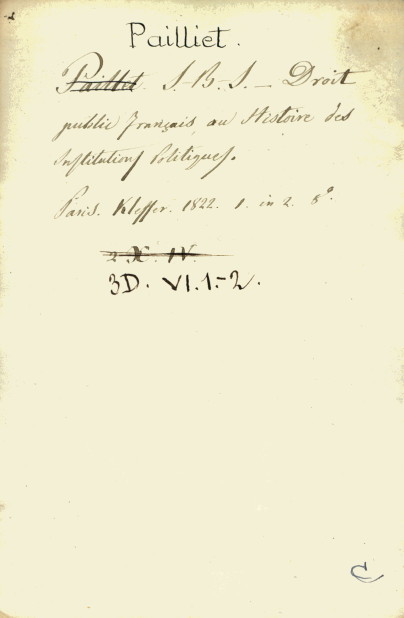 Pailliet.
Paillet. J.-B.-J. — Droit
public français, au Histoire des
Institutions Politiques.
Paris. Kleffer. 1822. 1. in 2. 8°.
2. X. IV.
3D. VI.1.-2.
C